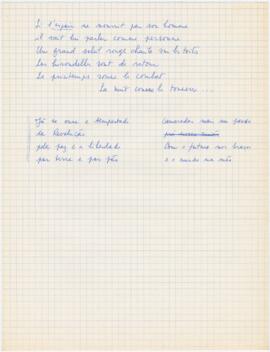 Si l'espoir ne nourrit pas son homme
il sait lui parler comme personne
Un grand soleil rouge chante sur les toits
Les hirondelles sont de retour
Le printemps sonne le combat
La nuit couve le tonnerre...
Já se ouve a tempestade
da Revolução
pela paz e a liberdade
por terra e por pão
Camaradas mais um passo
Com o futuro nos braços
e o mundo na mão